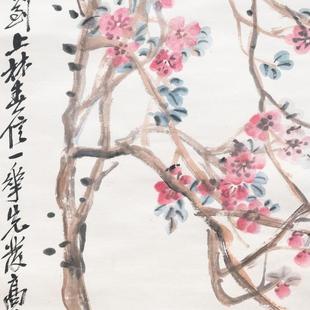 到上林春信一華先發高